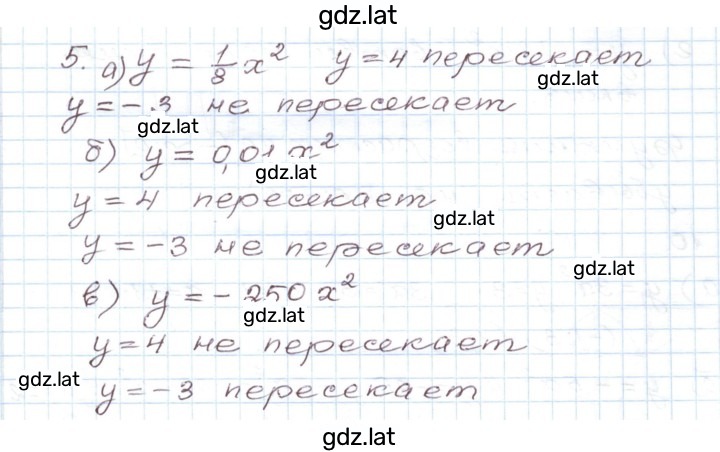 gdz.lat
5. а) y = 1/8 x² y = 4 пересекает
gdz.lat
y = -3 не пересекает
gdz.lat
б) y = 0,01 x²
gdz.lat
y = 4 пересекает
gdz.lat
y = -3 не пересекает
gdz.lat
в) y = -250 x²
gdz.lat
y = 4 не пересекает
gdz.lat
y = -3 пересекает
gdz.lat